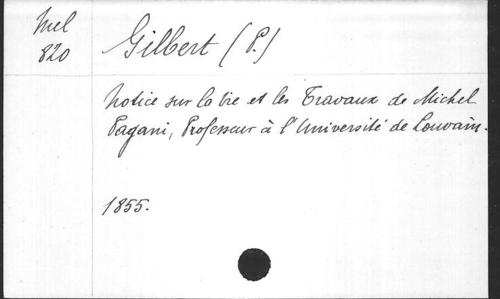 Mel
820
Gilbert (P.)
Notice sur la vie et les Travaux de Michel
Pagani, Professeur à l'Université de Louvain.
1855.